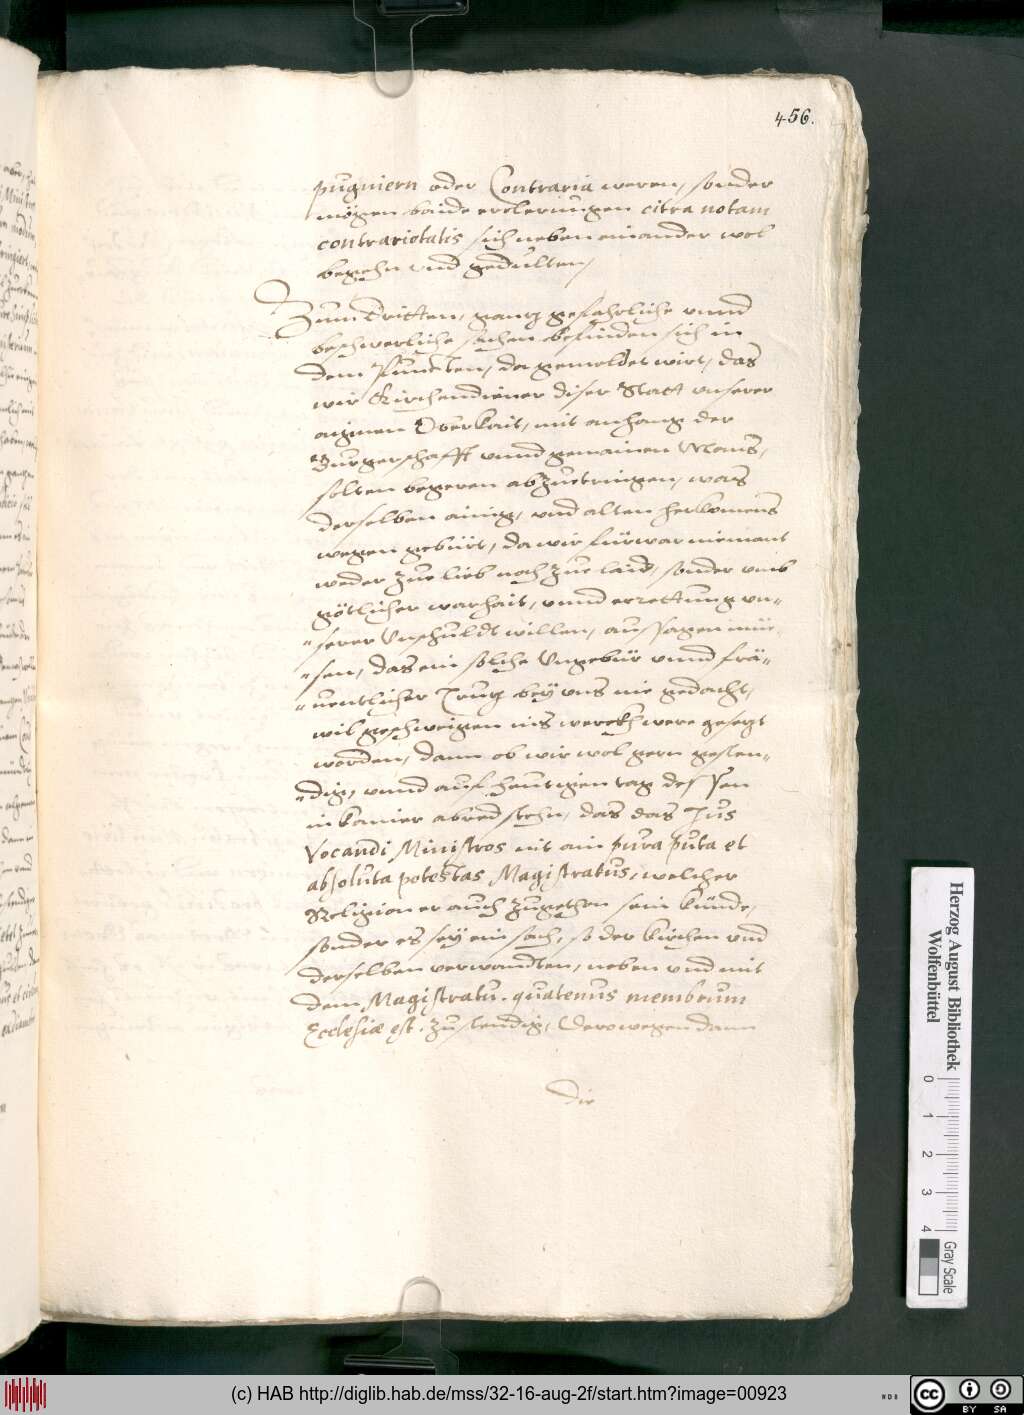 456.
pugniern oder Contraria weren, sonder
mögen baide erclerungen citra notam
contrarietatis sich neben einander wol
begehn vnd gedulten,
Zum dritten, gantz gefahrliche vnnd
beschwerliche sachen befinden sich in
dem Puncten, da gemeldet wirt, das
wir Kirchendiener diser Statt vnserer
aignen Oberkait, mit anhang der
Burgerschafft vnnd gemainen Mans,
solten begeren abzuetringen, was
derselben ainig, vnd alten herkomens
wegen gebürt, da wir fürwar niemant
weder zue lieb noch zue laid, sonder vmb
götlicher warhait, vnnd errettung vn„
„serer Vnschuldt willen, aussagen müe„
„sen, das ein solche Vngebür vnnd frä„
„uentlicher Trutz bey vns nie gedacht,
wil geschweigen ins werckh were gesetzt
worden, dann ob wir wol gern gesten„
„dig, vnnd auf heutigen tag dessen
in kainer abred stehn, das das Jus
Vocandi Ministros nit ain pura puta et
absoluta potestas Magistratus, welcher
Religion er auch zugethon sein künde,
sonder es sey ein sach, so der kirchen vnd
derselben verwandten, neben vnd mit
dem Magistratu, quatenus membrum
Ecclesiæ est, zustendig, Derowegen dann
die
Herzog August Bibliothek
Wolfenbüttel
0 1 2 3 4
Gray Scale
(c) HAB http://diglib.hab.de/mss/32-16-aug-2f/start.htm?image=00923
WDB
cc BY SA